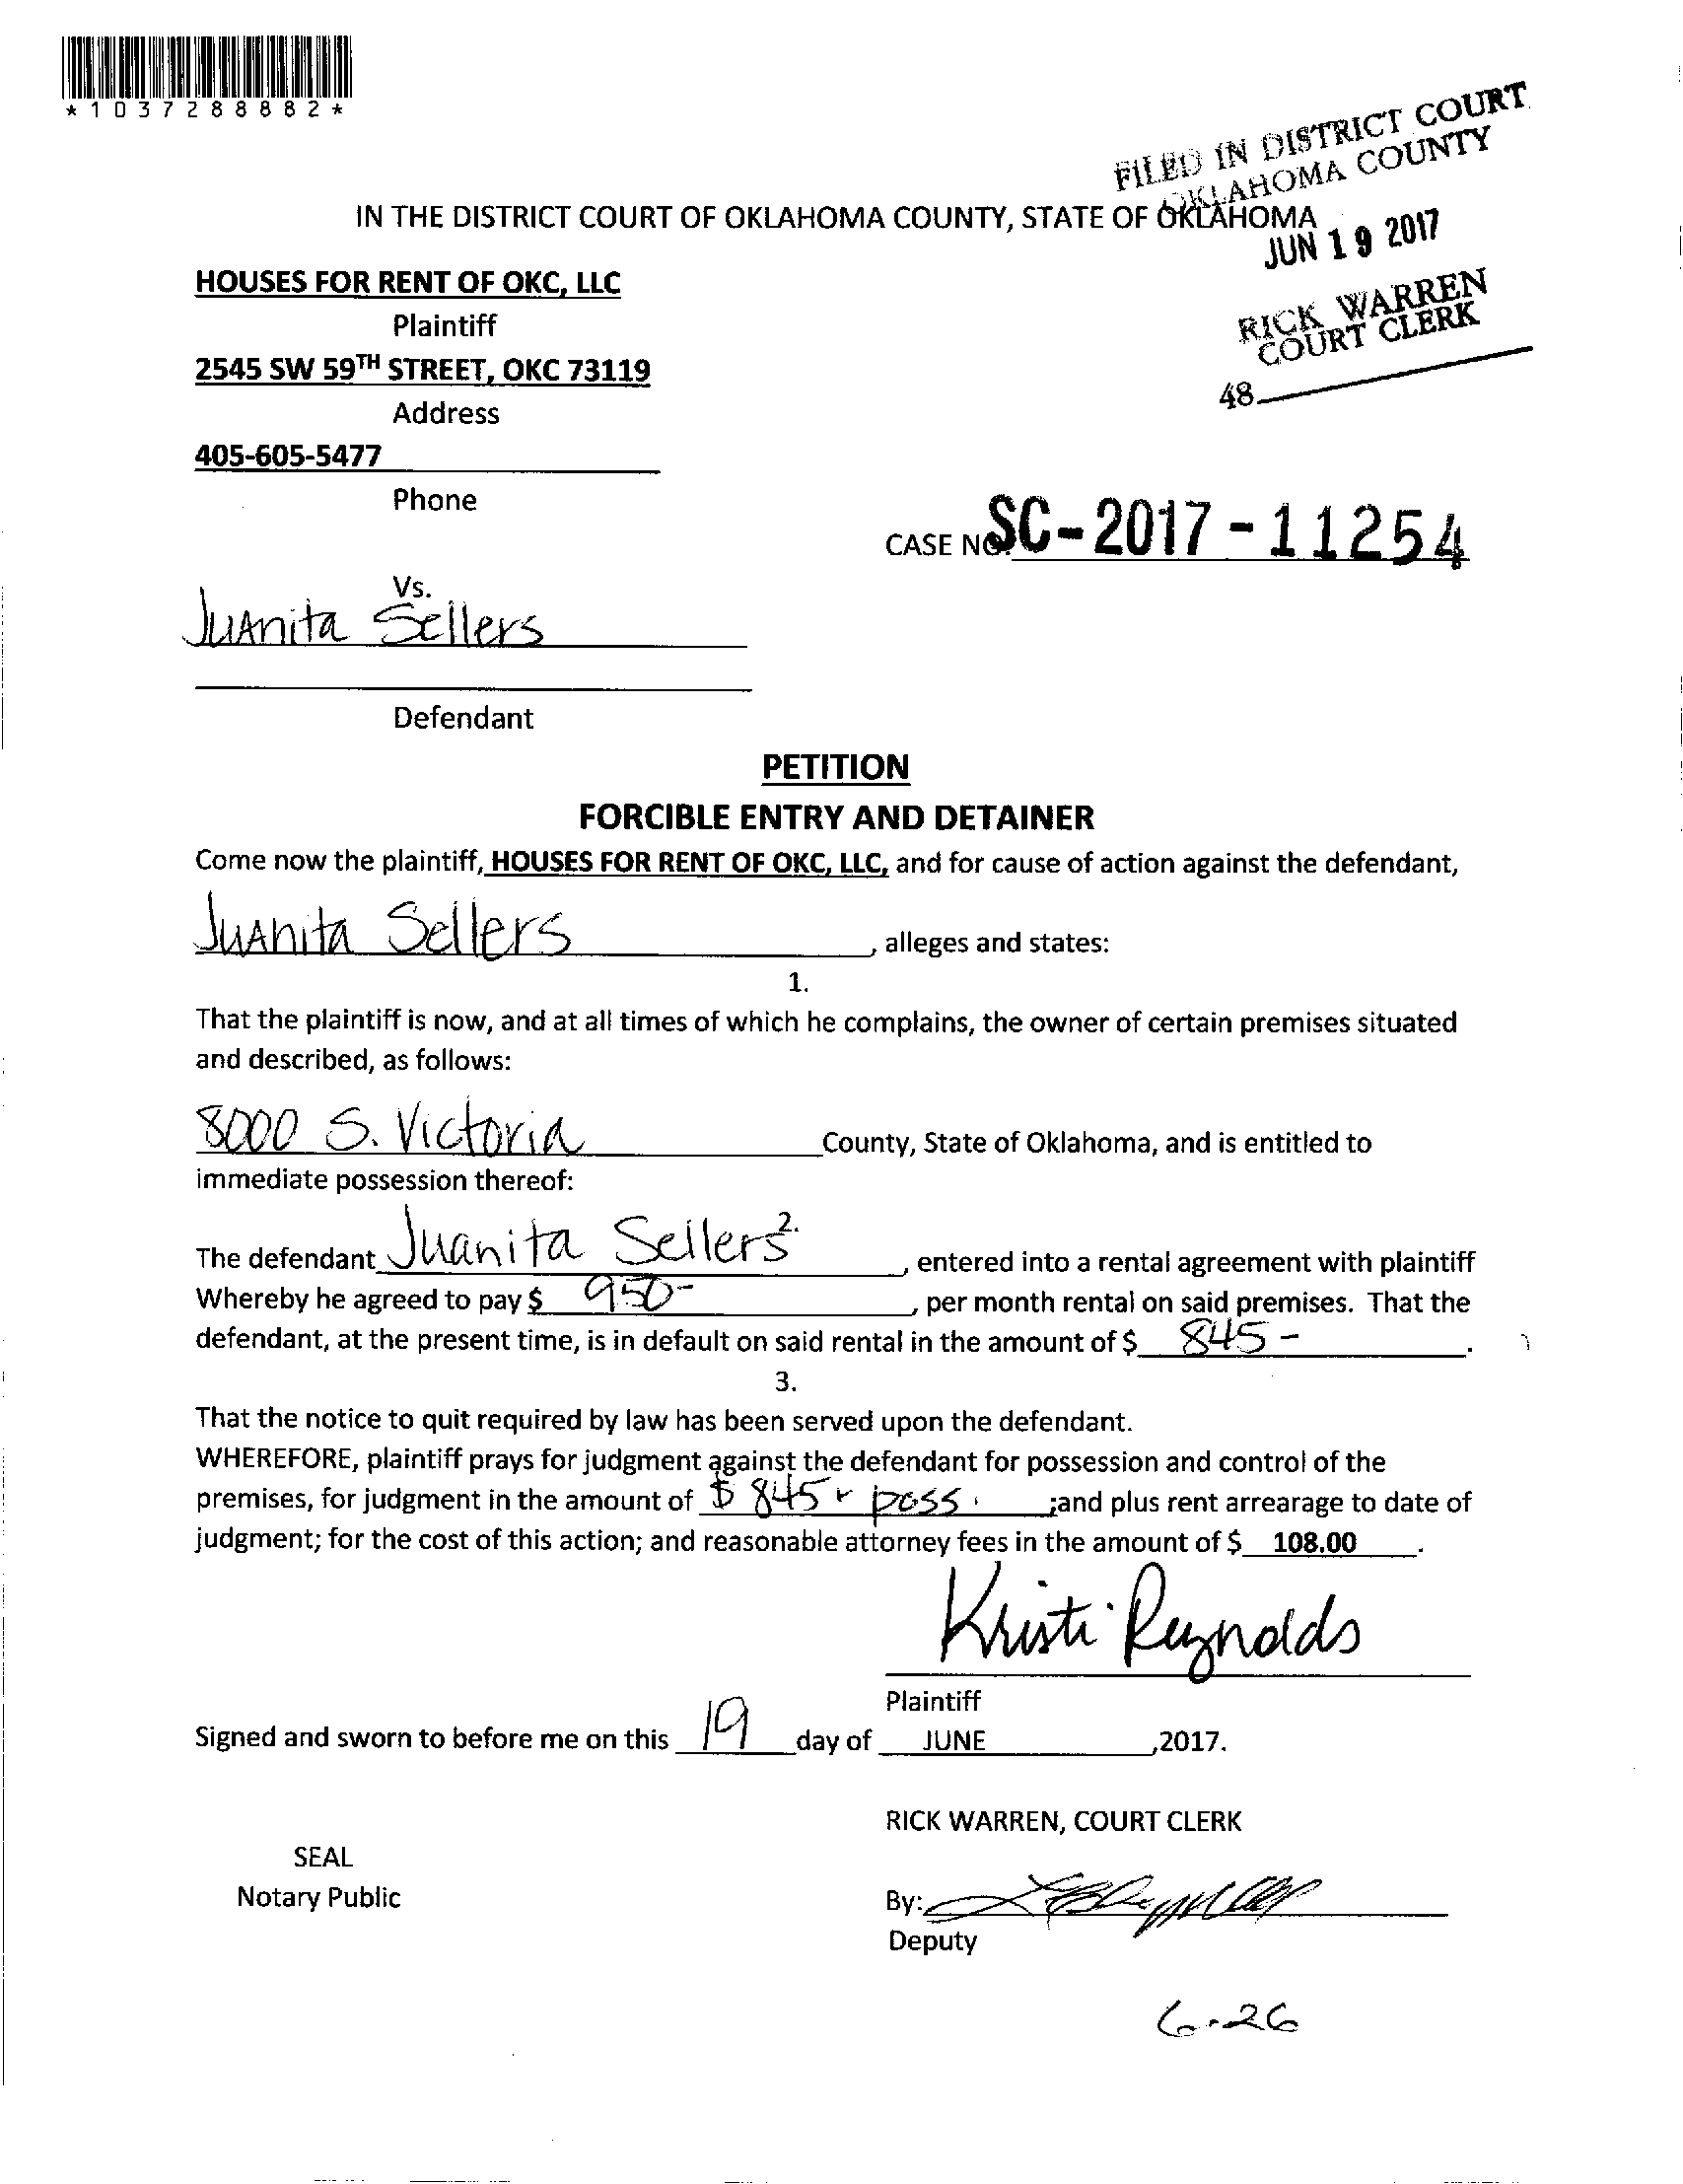 *1037288882*
FILED IN DISTRICT COURT
OKLAHOMA COUNTY
IN THE DISTRICT COURT OF OKLAHOMA COUNTY, STATE OF OKLAHOMA
JUN 19 2017
HOUSES FOR RENT OF OKC, LLC
Plaintiff
RICK WARREN
COURT CLERK
2545 SW 59TH STREET, OKC 73119
Address
48
405-605-5477
Phone
CASE NO. SC-2017-11254
Vs.
Juanita Sellers
Defendant
PETITION
FORCIBLE ENTRY AND DETAINER
Come now the plaintiff, HOUSES FOR RENT OF OKC, LLC, and for cause of action against the defendant,
Juanita Sellers, alleges and states:
1.
That the plaintiff is now, and at all times of which he complains, the owner of certain premises situated
and described, as follows:
8000 S. Victoria County, State of Oklahoma, and is entitled to
immediate possession thereof:
2.
The defendant Juanita Sellers, entered into a rental agreement with plaintiff
Whereby he agreed to pay $ 950-, per month rental on said premises. That the
defendant, at the present time, is in default on said rental in the amount of $ 845-.
3.
That the notice to quit required by law has been served upon the defendant.
WHEREFORE, plaintiff prays for judgment against the defendant for possession and control of the
premises, for judgment in the amount of $ 845 + poss. ;and plus rent arrearage to date of
judgment; for the cost of this action; and reasonable attorney fees in the amount of $ 108.00.
Kristi Reynolds
Plaintiff
Signed and sworn to before me on this 19 day of JUNE,2017.
RICK WARREN, COURT CLERK
SEAL
Notary Public
By:
Deputy
6-26